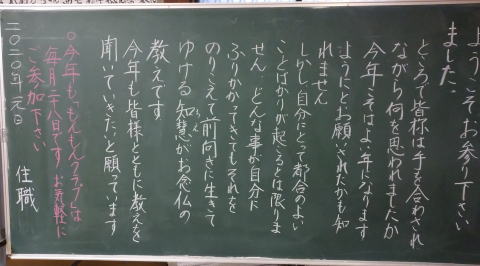 ようこそお参り下さい
ました。
ところで皆様は手を合わされ
ながら何を思われましたか
今年こそはよい年になります
ようにとお願いされたかも知
れません
しかし自分にとって都合のよい
ことばかりが起こるとは限りま
せん。どんな事が自分に
ふりかかってきてもそれを
のりこえて前向きに生きて
ゆける知慧がお念仏の
教えです
今年も皆様とともに教えを
聞いていきたいと願っています
住職
○今年も「もんもんクラブ」は
毎月二十八日です お気軽に
ご参加下さい
二〇二〇年元日